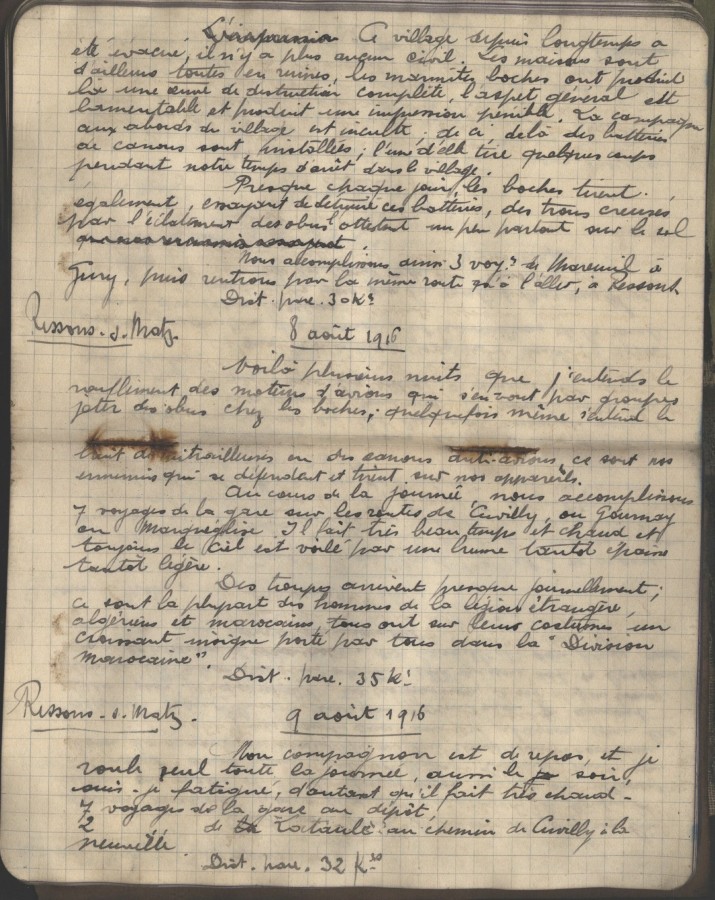 Ce village depuis longtemps a
été évacué, il n'y a plus aucun civil. Les maisons sont
d'ailleurs toutes en ruines, les marmites boches ont produit
là une œuvre de destruction complète, l'aspet général est
lamentable et produit une impression pénible. La campagne
aux abords du village est inculte, de ci delà des batteries
de canons sont installées; l'une d'elle tire quelques coups
pendant notre temps d'arrêt dans le village.
Presque chaque jour, les boches tirent
également, essayant de détruire ces batteries, des trous creusés
par l'éclatement des obus l'attestent un peu partout sur le sol
Nous accomplissons ainsi 3 voy.s de Mareuil à
Gury, puis rentrons par la même route qu'à l'aller, à Ressons
Dist. parc. 30 Ks
Ressons. s. Matz. 8 août 1916
Voilà plusieurs nuits que j'entends le
ronflement des moteurs d'avions qui s'en vont par groupes
jeter des obus chez les boches; quelquefois même s'entend le
bruit de mitrailleuses ou des canons anti-avions, ce sont nos
ennemis qui se défendent et tirent sur nos appareils.
Au cours de la journée, nous accomplissons
7 voyages de la gare sur les routes de Cuvilly, ou Gournay
ou Marqueglise. Il fait très beau temps et chaud et
toujours le ciel est voilé par une brume tantôt épaisse
tantôt légère.
Des troupes arrivent presque journellement;
ce sont la plupart des hommes de la légion étrangère,
algériens et marocains, tous ont sur leurs costumes un
croissant insigne porté par tous dans la "Division
Marocaine".
Dist. parc. 35 Ks
Ressons. s. Matz. 9 août 1916
Mon compagnon est de repos, et je
roule seul toute la journée, aussi le soir,
suis-je fatigué, d'autant qu'il fait très chaud.
7 voyages de la gare au dépôt,
2 " de Lataule au chemin de Cuvilly à la
neuville
Dist. parc. 32 Kes